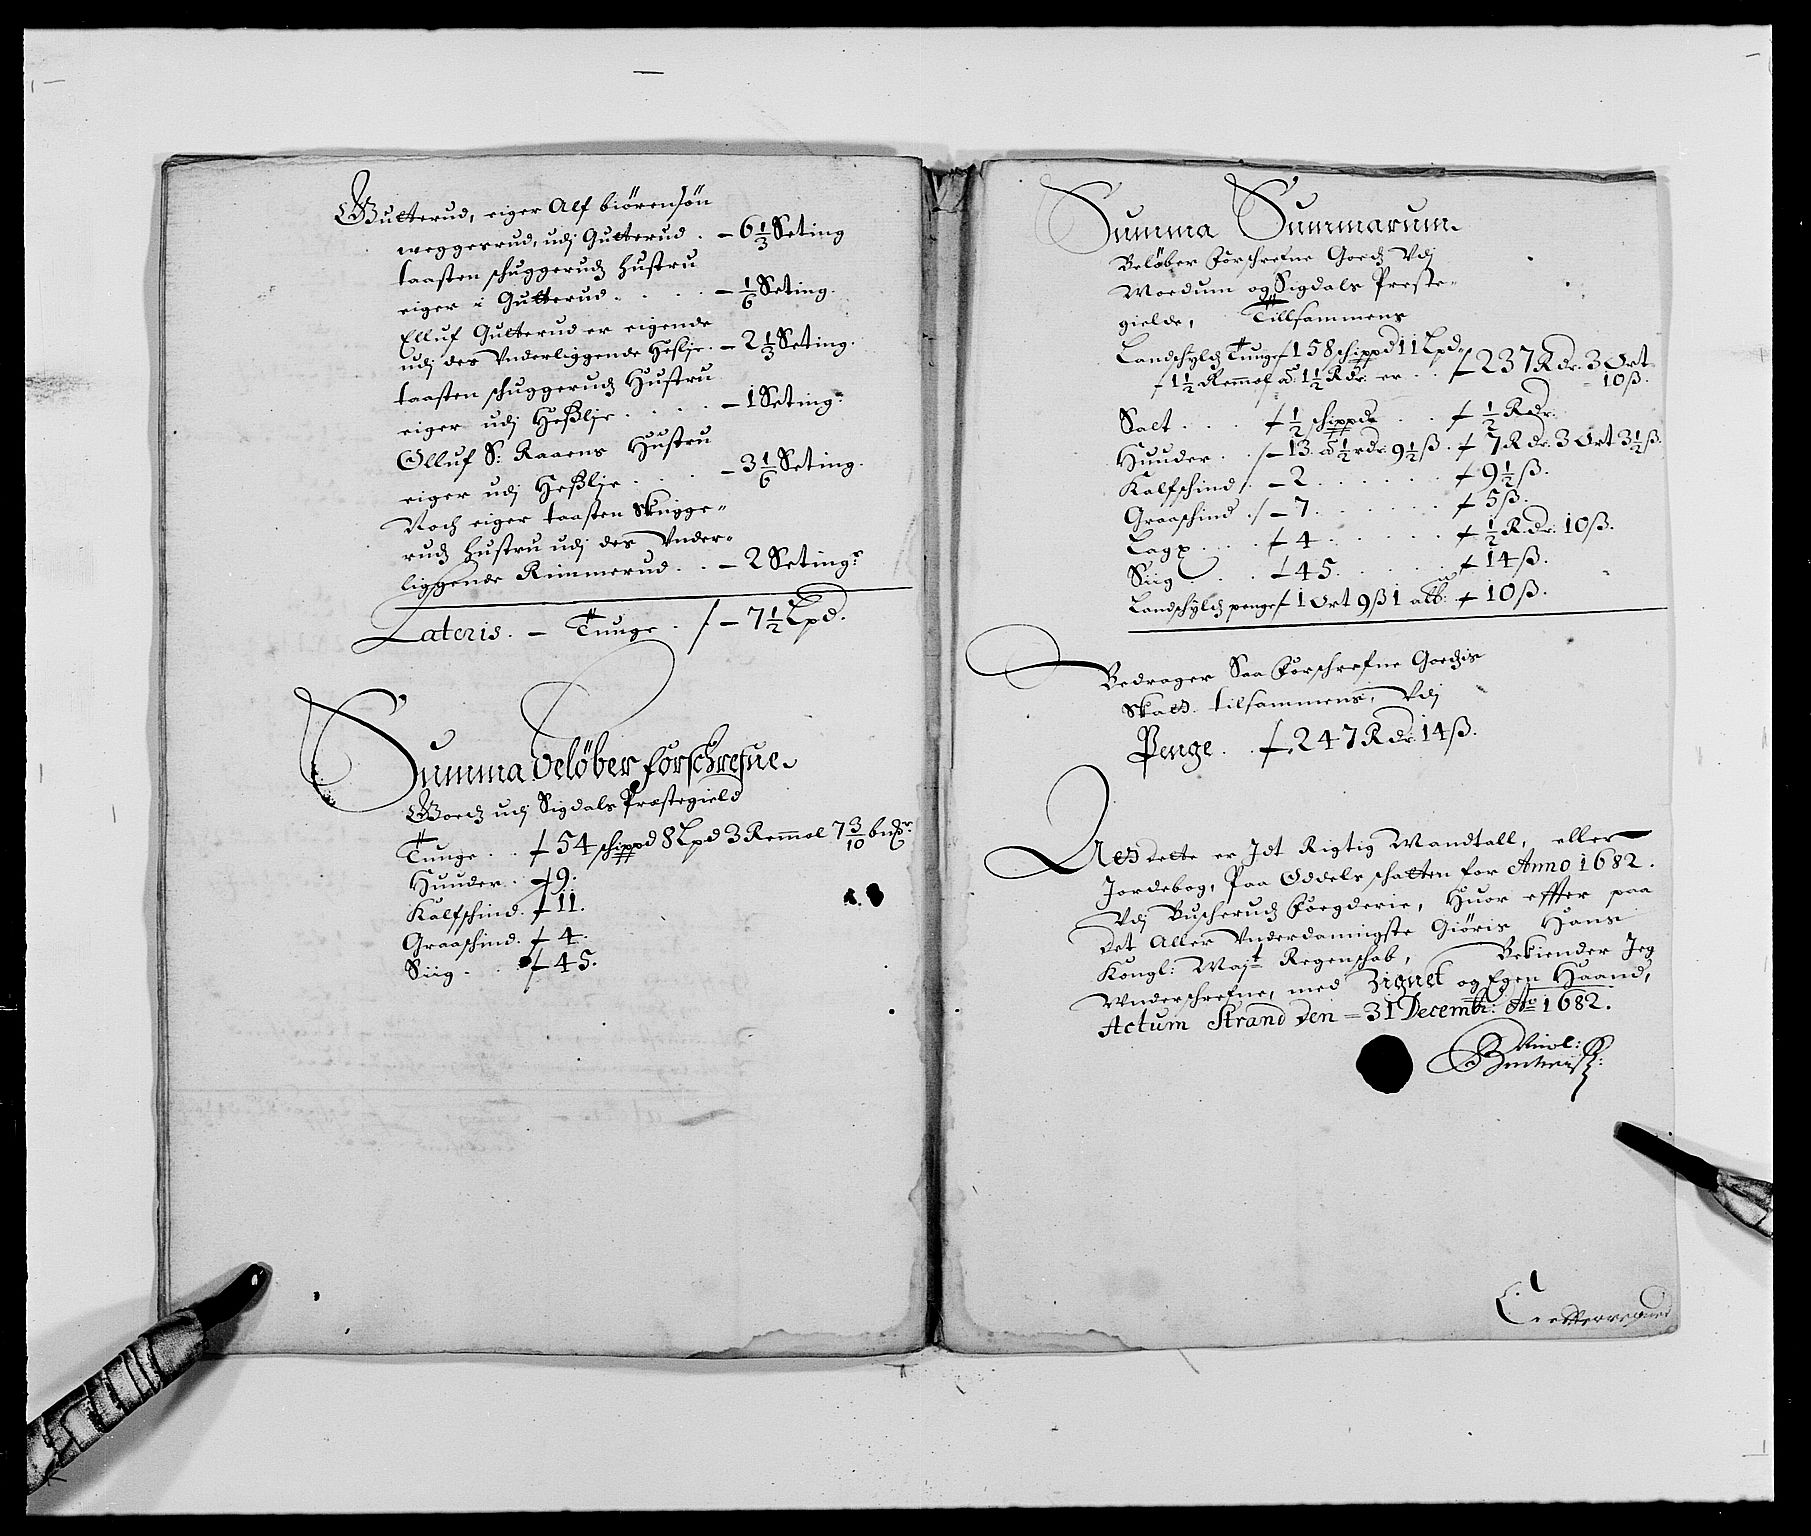 Gulterud, eiger Alf biörensön
weggerrud, udj Gulterud . – 6 1/3 Seting
taasten schuggerudz hustru
eiger i Gulterud . . . . – 1/6 Seting.
Elluf Gulterud er eigende
udj des Vnderliggende Heslie . – 2 1/3 Seting.
taasten schuggerudz Hustru
eiger udj Heßlie . . . . – 1 Seting:
Olluf S: Raaens Hustru
eiger udj Heßlie . . . – 3 1/6 Seting.
Noch eiger taasten Skugge=
rudz hustru udj des Vnder=
liggende Rimmerud . . – 2 Seting:
Lateris . – Tunge . /– 7 1/2 Lpd.
Summa Belöber forschrefne
Goedz udj Sigdals Præstegield
Tunge . . /– 54 schippd 8 Lpd 3 Remmol 7 3/10 budr
Huuder . – 9.
Kalfschind . /– 11.
Graaschind . /– 4.
Siig . . /– 45.
Summa Summarum
Belöber forschrefne Goedz Vdj
Moedum og Sigdals Preste=
gielde, Tillsammens
Landschyldz Tunge /– 158 schippd 11 Lpd
/– 1 1/2 Remmol â 1 1/2 Rdr. er . . /– 237 Rdr. 3 Ort
10 ß.
Salt . . . /– 1/2 schippd . . /– 1/2 Rdr.
Huuder . . /– 13 â 1/2 rdr. 9 1/2 ß . /– 7 Rdr. 3 Ort 3 1/2 ß.
Kalfschind /– 2 . . . . . . /– 9 1/2 ß.
Graaschind /– 7 . . . . . . /– 5 ß.
Lagx . . . /– 4 . . . . . . /– 1/2 Rdr. 10 ß.
Siig . . . /– 45 . . . . . . /– 14 ß.
Landschyldz penge /– 1 Ort 9 ß 1 alb: /– 10 ß.
Bedrager Saa forschrefne Goedzis
Skatt tilsammens, Vdj
Penge . . /– 247 Rdr: 14 ß.
At dette er Jdt Rigtig Mandtall, eller
Jordebog, Paa Oddels schatten for Anno 1682.
Vdj Buscherudz foegderie, Huor effter paa
det Aller Vnderdannigste Giöris Hans
Kongl: Mayt: Regenschab, Bekiender Jeg
Vnderschrefne, med Zignet og Egen Haand,
Actum Strand den – 31 Decembr: Ao 1682.